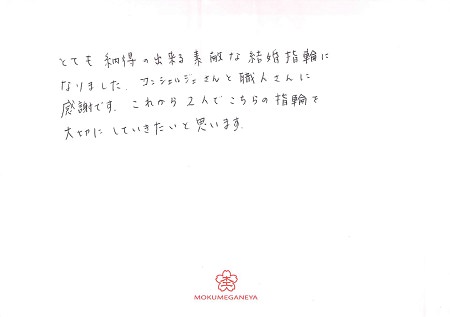 とても納得の出来る素敵な結婚指輪に
なりました。コンシェルジュさんと職人さんに
感謝です。これから2人でこちらの指輪を
大切にしていきたいと思います。
MOKUMEGANEYA